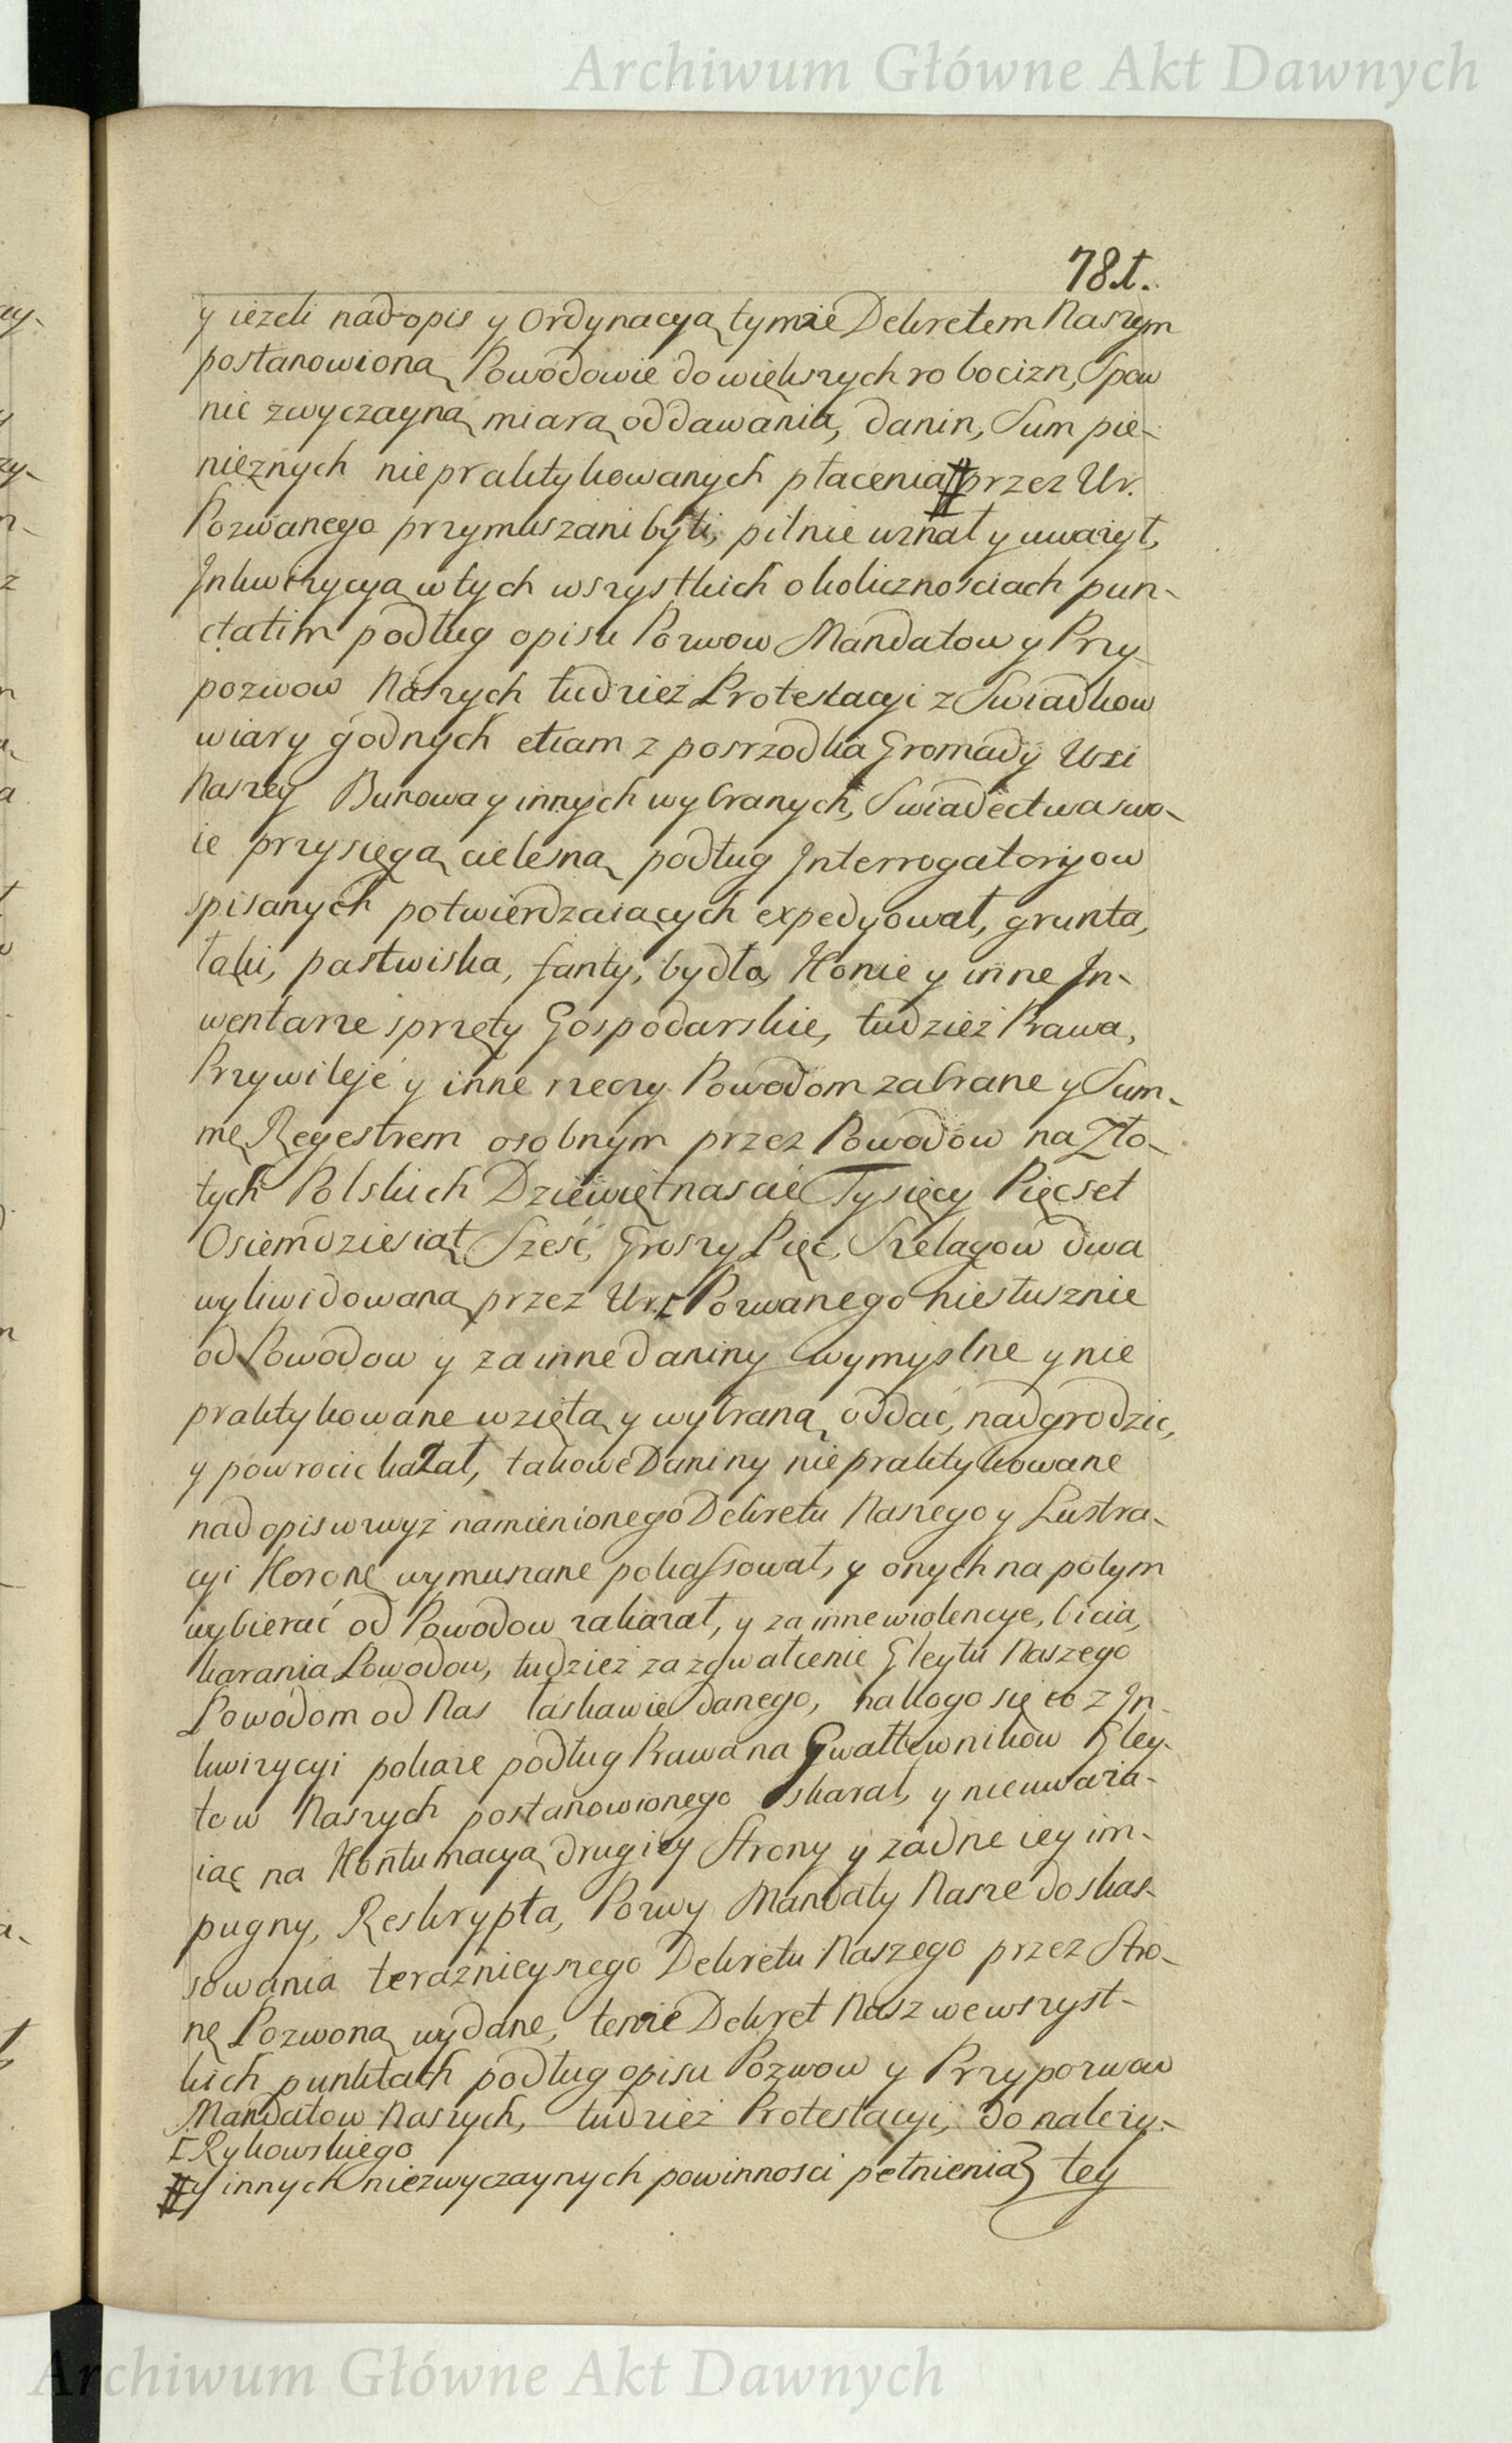 Archiwum Główne Akt Dawnych
78t.
y ieżeli nad opis y Ordynacyą tymże Dekretem Naszym
postanowioną Powodowie do większych robocizn, Spow
nie zwyczayną miarą oddawania, danin, Sum pie-
niężnych niepraktykowanych płacenia # przez Ur.
Pozwanego przymuszani byli, pilnie uznał y uważył,
Inkwizycyą w tych wszystkich okolicznosciach pun-
ctatim podług opisu Pozwow Mandatow y Przy-
pozwow Naszych tudzież Protestacyi z Swiadkow
wiary godnych etiam z posrzodka Gromady Wsi
Naszey Bunowa y innych wybranych, Swiadectwa swo-
ie przysięgą cielesną podług Interrogatoryow
spisanych potwierdzaiących expedyował, grunta,
łąki, pastwiska, fanty, bydło, Konie y inne In-
wentarze sprzęty Gospodarskie, tudzież Prawa,
Przywileje y inne rzeczy Powodom zabrane y Sum-
mę Regestrem osobnym przez Powodow na Zło-
tych Polskich Dziewiętnascie Tysięcy Pięcset
Osiemdziesiąt Sześć, Groszy Pięc, Szelągow dwa
wylikwidowaną przez Ur. [ Pozwanego niesłusznie
od Powodow y za inne daniny wymyslne y nie
praktykowane wziętą y wybraną oddać, nadgrodzic,
y powrocic kazał, takowe Daniny niepraktykowane
nad opis wwyż namienionego Dekretu Naszego y Lustra-
cyi Koronę wymuszane pokassował, y onych na potym
wybierać od Powodow zakazał, y za inne wiolencye, bicia,
karania Powodow, tudzież za zgwałcenie Gleytu Naszego
Powodom od Nas łaskawie danego, na kogo się to z In-
kwizycyi pokaże podług Prawa na Gwałtewnikow Gley-
tow Naszych postanowionego skarał, y nieuważa-
iąc na Kontumacyą drugiey Strony y żadne iey im-
pugny, Reskrypta, Pozwy Mandaty Nasze do skas-
sowania teraznieyszego Dekretu Naszego przez Stro-
nę Pozwoną wydane, tenże Dekret Nasz we wszyst-
kich punktach podług opisu Pozwow y Przypozwow
Mandatow Naszych, tudzież Protestacyi, do należy-
[ Rykowskiego
# y innych niezwyczaynych powinnosci pełnienia} tey
Archiwum Główne Akt Dawnych